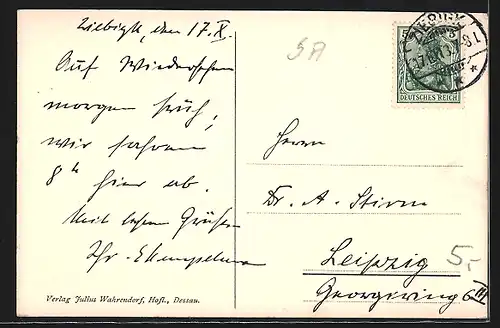 Ziebigk, den 17. X.
Auf Wiedersehen
morgen früh;
wir fahren
8h hier ab.
Mit besten Grüßen
Ihr
5A
5
DEUTSCHES REICH
Herrn
Dr. A. Stirm
Leipzig
Georgiring 6 III
5,-
Verlag Julius Wahrendorf, Hofl., Dessau.